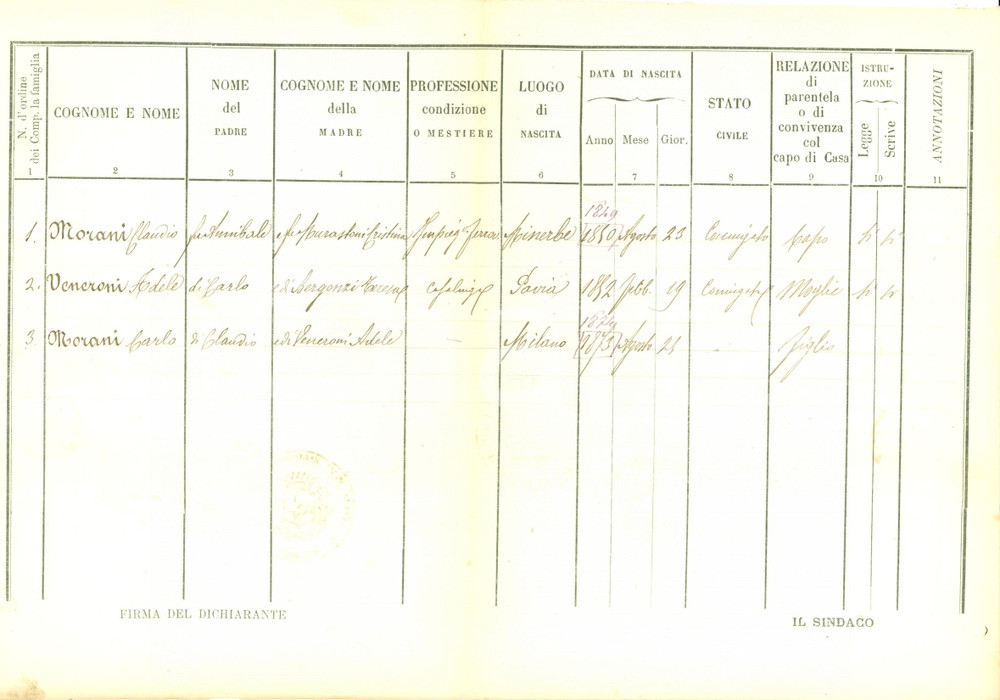 N. d'ordine dei Comp. la famiglia
COGNOME E NOME
NOME del PADRE
COGNOME E NOME della MADRE
PROFESSIONE condizione O MESTIERE
LUOGO di NASCITA
DATA DI NASCITA
Anno Mese Gior.
STATO CIVILE
RELAZIONE di parentela o di convivenza col capo di Casa
ISTRUZIONE
Legge Scrive
ANNOTAZIONI
1 2 3 4 5 6 7 8 9 10 11
1849
1. Morani Claudio fu Annibale e fu Murastoni Cristina Impieg. Minerbe 1850 Agosto 23 Coniugato Capo si si
2. Veneroni Adele di Carlo e di Bergonzi Teresa Casalinga Pavia 1852 febb. 19 Coniugata Moglie si si
1874
3. Morani Carlo di Claudio e di Veneroni Adele — Milano 1873 Agosto 25 — figlio
FIRMA DEL DICHIARANTE
IL SINDACO